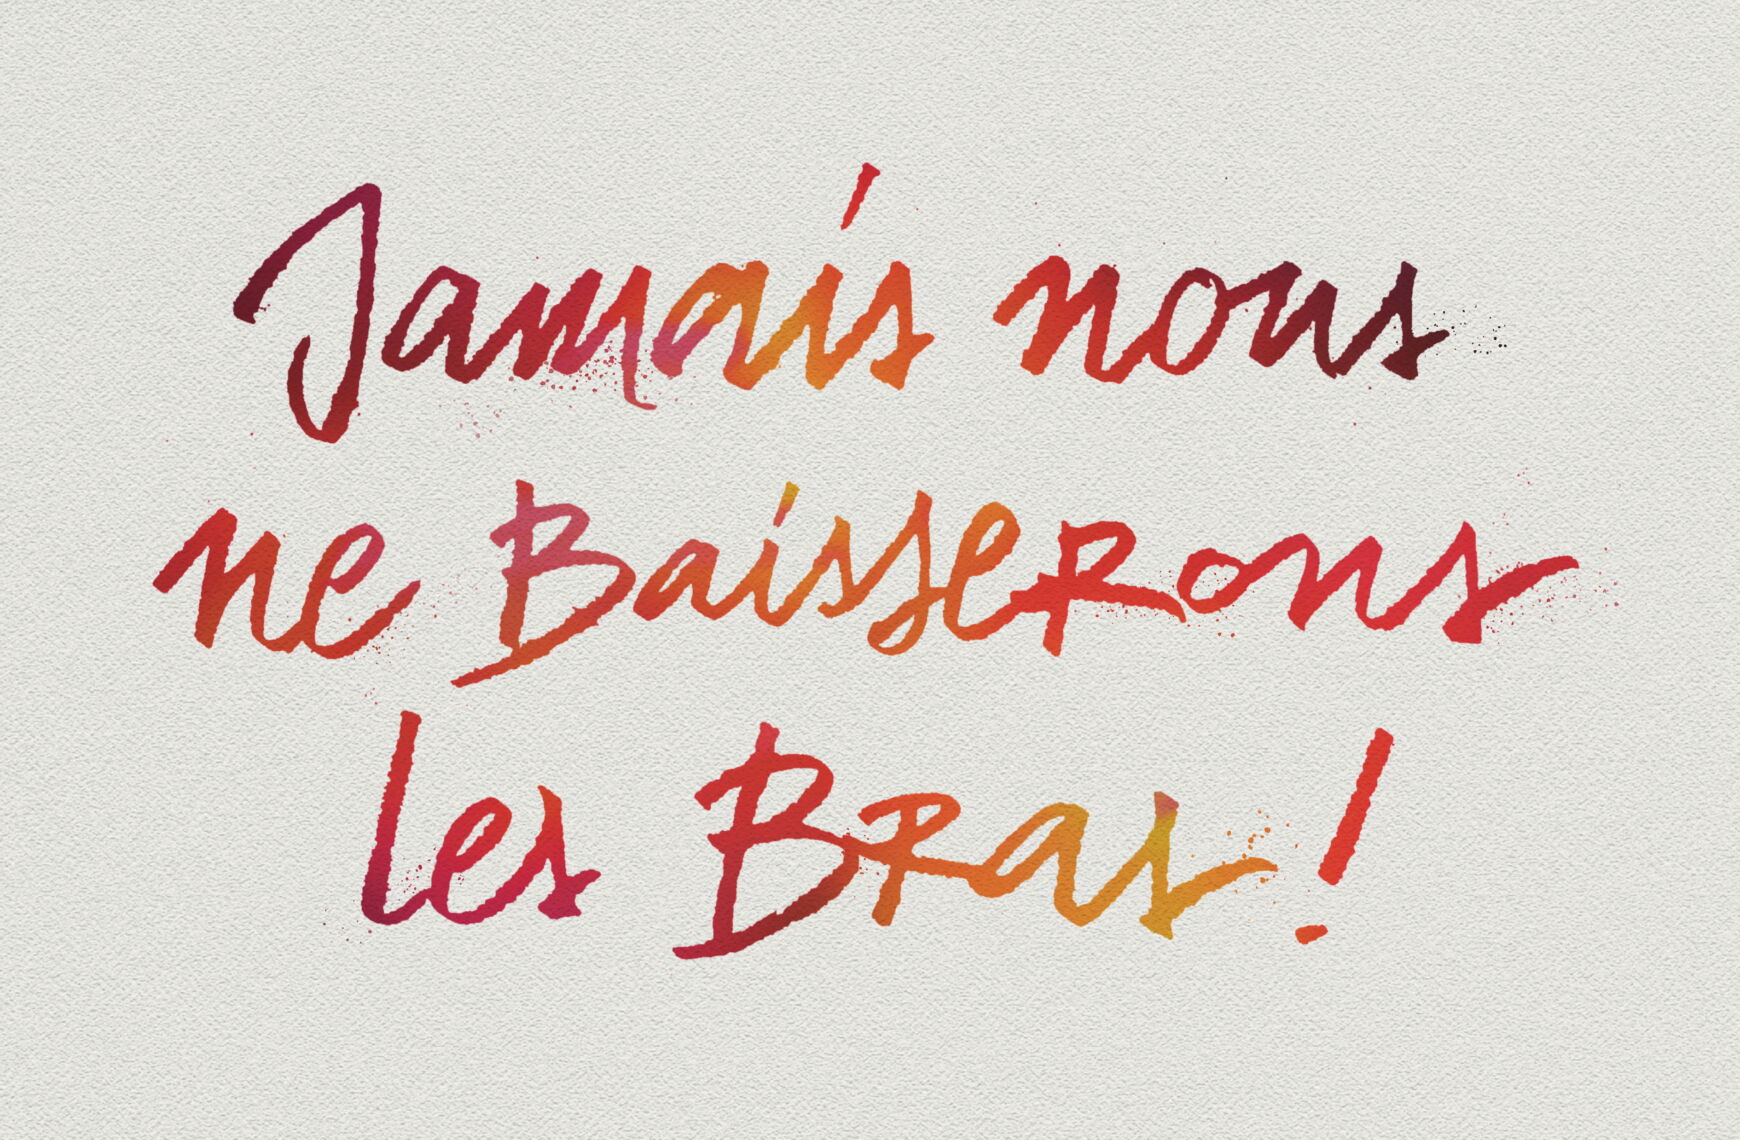 Jamais nous
ne Baisserons
les Bras !